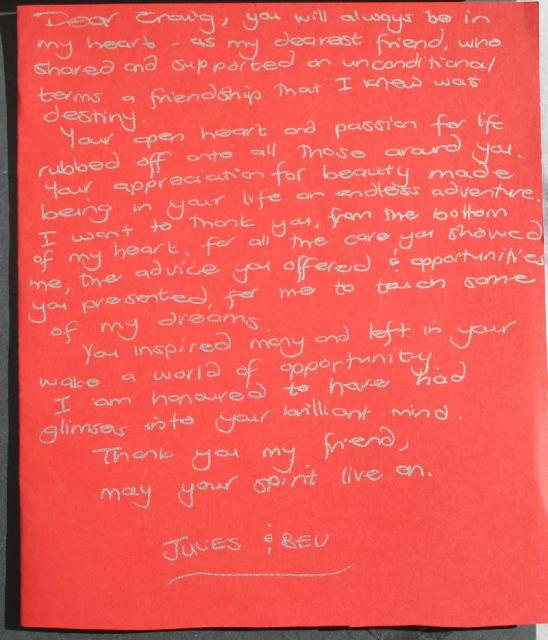 Dear Craig, you will always be in
my heart - as my dearest friend, who
shared and supported on unconditional
terms a friendship that I knew was
destiny.
Your open heart and passion for life
rubbed off onto all those around you.
Your appreciation for beauty made
being in your life an endless adventure.
I want to thank you, from the bottom
of my heart, for all the care you showed
me, the advice you offered & opportunities
you presented, for me to touch some
of my dreams.
You inspired many and left in your
wake a world of opportunity
I am honoured to have had
glimses into your brilliant mind.
Thank you my friend,
may your spirit live on.
JULES & BEV